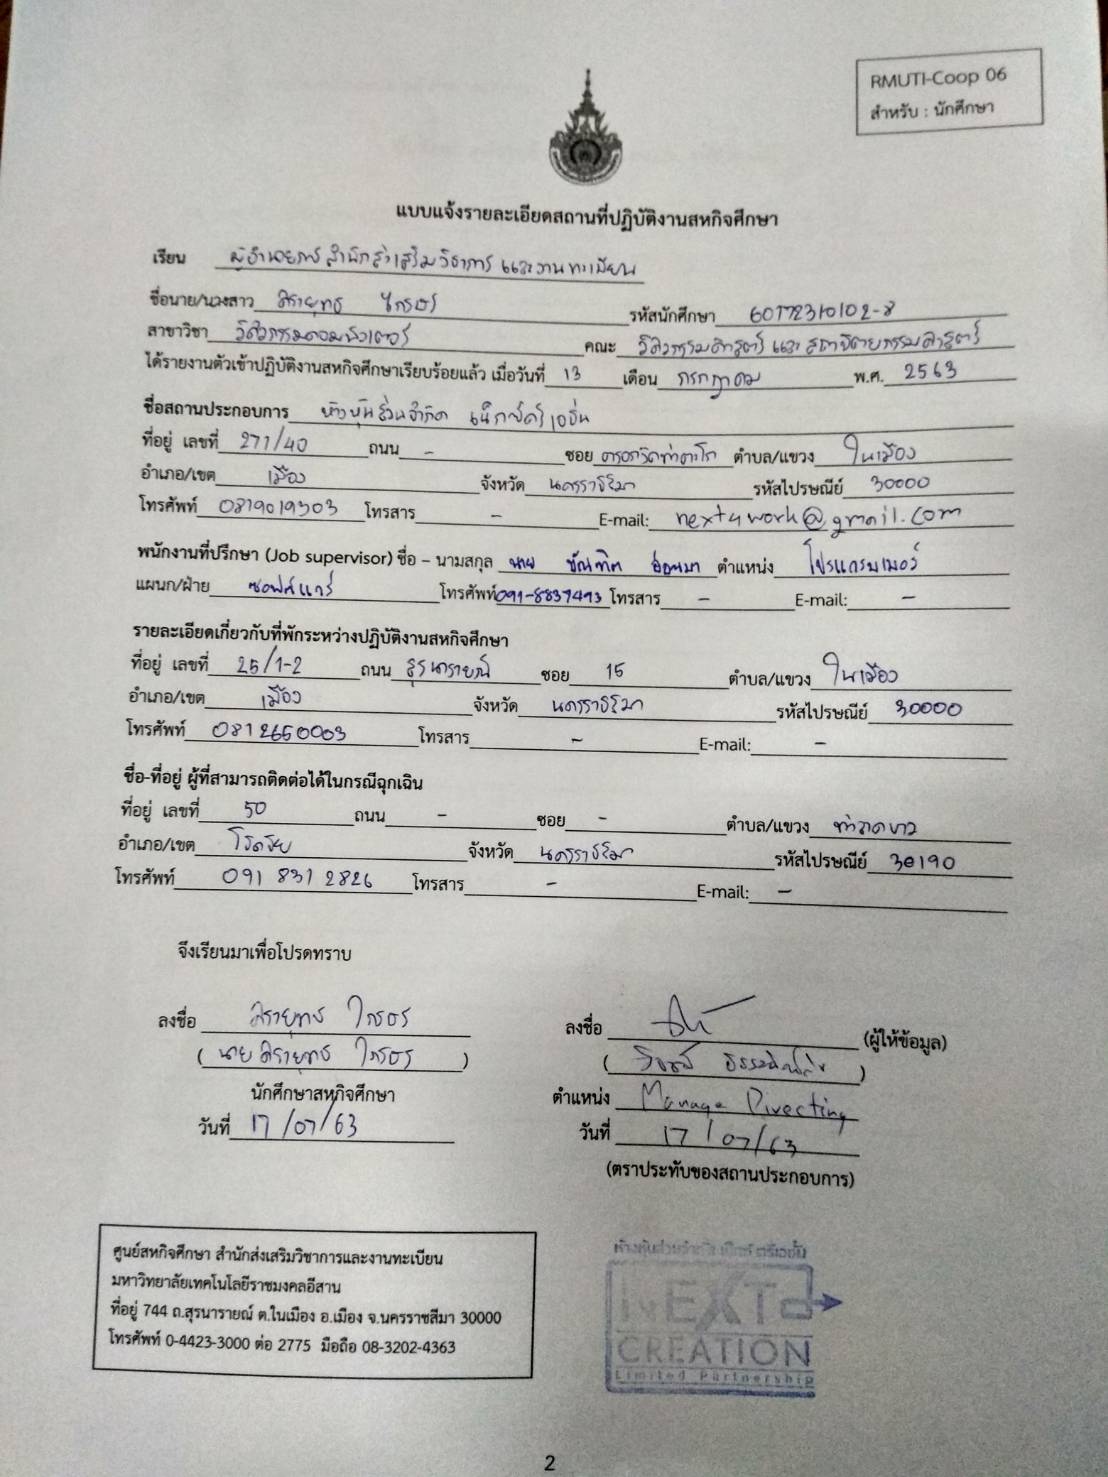 RMUTI-Coop 06
สำหรับ : นักศึกษา
แบบแจ้งรายละเอียดสถานที่ปฏิบัติงานสหกิจศึกษา
เรียน ผู้อำนวยการสำนักส่งเสริมวิชาการและงานทะเบียน
ชื่อนาย/นางสาว ศิรายุทธ ไกรธร รหัสนักศึกษา 60172310102-8
สาขาวิชา วิศวกรรมคอมพิวเตอร์ คณะ วิศวกรรมศาสตร์ และ สถาปัตยกรรมศาสตร์
ได้รายงานตัวเข้าปฏิบัติงานสหกิจศึกษาเรียบร้อยแล้ว เมื่อวันที่ 13 เดือน กรกฎาคม พ.ศ. 2563
ชื่อสถานประกอบการ ห้างหุ้นส่วนจำกัด เน็กซ์ครีเอชั่น
ที่อยู่ เลขที่ 271/40 ถนน - ซอย ตรอกวัดท่าตะโก ตำบล/แขวง ในเมือง
อำเภอ/เขต เมือง จังหวัด นครราชสีมา รหัสไปรษณีย์ 30000
โทรศัพท์ 0819019303 โทรสาร - E-mail: next4work@gmail.com
พนักงานที่ปรึกษา (Job supervisor) ชื่อ – นามสกุล นาย ตำแหน่ง โปรแกรมเมอร์
แผนก/ฝ่าย ซอฟต์แวร์ โทรศัพท์ 091-8837493 โทรสาร - E-mail: -
รายละเอียดเกี่ยวกับที่พักระหว่างปฏิบัติงานสหกิจศึกษา
ที่อยู่ เลขที่ 25/1-2 ถนน สุรนารายณ์ ซอย 15 ตำบล/แขวง ในเมือง
อำเภอ/เขต เมือง จังหวัด นครราชสีมา รหัสไปรษณีย์ 30000
โทรศัพท์ 0812650003 โทรสาร - E-mail: -
ชื่อ-ที่อยู่ ผู้ที่สามารถติดต่อได้ในกรณีฉุกเฉิน
ที่อยู่ เลขที่ 50 ถนน - ซอย - ตำบล/แขวง ท่าลาดขาว
อำเภอ/เขต โชคชัย จังหวัด นครราชสีมา รหัสไปรษณีย์ 30190
โทรศัพท์ 091 831 2826 โทรสาร - E-mail: -
จึงเรียนมาเพื่อโปรดทราบ
ลงชื่อ ศิรายุทธ ไกรธร ลงชื่อ (ผู้ให้ข้อมูล)
( นาย ศิรายุทธ ไกรธร )
นักศึกษาสหกิจศึกษา ตำแหน่ง Manage Directing
วันที่ 17/07/63 วันที่ 17/07/63
(ตราประทับของสถานประกอบการ)
ศูนย์สหกิจศึกษา สำนักส่งเสริมวิชาการและงานทะเบียน
มหาวิทยาลัยเทคโนโลยีราชมงคลอีสาน
ที่อยู่ 744 ถ.สุรนารายณ์ ต.ในเมือง อ.เมือง จ.นครราชสีมา 30000
โทรศัพท์ 0-4423-3000 ต่อ 2775 มือถือ 08-3202-4363
ห้างหุ้นส่วนจำกัด เน็กซ์ ครีเอชั่น
NEXT
CREATION
Limited Partnership
2